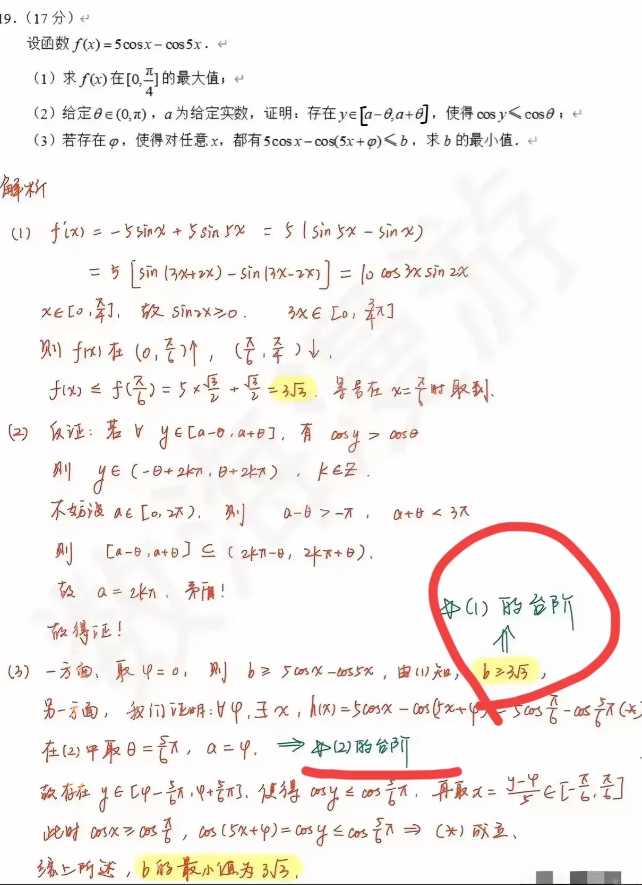 19.（17分）
设函数 f(x)=5cosx−cos5x．
（1）求 f(x) 在 [0, π/4] 的最大值；
（2）给定 θ∈(0,π)，a 为给定实数，证明：存在 y∈[a−θ,a+θ]，使得 cos y⩽cosθ；
（3）若存在 φ，使得对任意 x，都有 5cosx−cos(5x+φ)⩽b，求 b 的最小值．
解析
(1) f'(x) = −5sinx + 5sin5x = 5(sin5x − sinx)
= 5[sin(3x+2x) − sin(3x−2x)] = 10 cos3x sin2x
x∈[0, π/4]，故 sin2x≥0. 3x∈[0, 3/4π]
则 f(x) 在 (0, π/6)↑，(π/6, π/4)↓.
f(x) ≤ f(π/6) = 5×√3/2 + √3/2 = 3√3. 等号在 x=π/6 时取到.
(2) 反证：若 ∀ y∈[a−θ, a+θ]，有 cosy > cosθ
则 y∈(−θ+2kπ, θ+2kπ)，k∈Z.
不妨设 a∈[0, 2π)，则 a−θ > −π，a+θ < 3π
则 [a−θ, a+θ] ⊆ (2kπ−θ, 2kπ+θ).
故 a = 2kπ，矛盾！
故得证！
(1) 的台阶
⇑
(3) 一方面，取 φ=0，则 b ≥ 5cosx−cos5x，由(1)知，b≥3√3，
另一方面，我们证明：∀φ,∃x，h(x)=5cosx−cos(5x+φ) = 5cosπ/6−cos5/6π (*)
在(2)中取 θ=5/6π，a=φ. ⇒ (2)的台阶
故存在 y∈[φ−5/6π, φ+5/6π]. 使得 cosy ≤ cos5/6π. 再取 x = (y−φ)/5 ∈[−π/6, π/6]
此时 cosx≥cosπ/6，cos(5x+φ)=cosy≤cos5/6π ⇒ (*)成立.
综上所述，b的最小值为3√3.